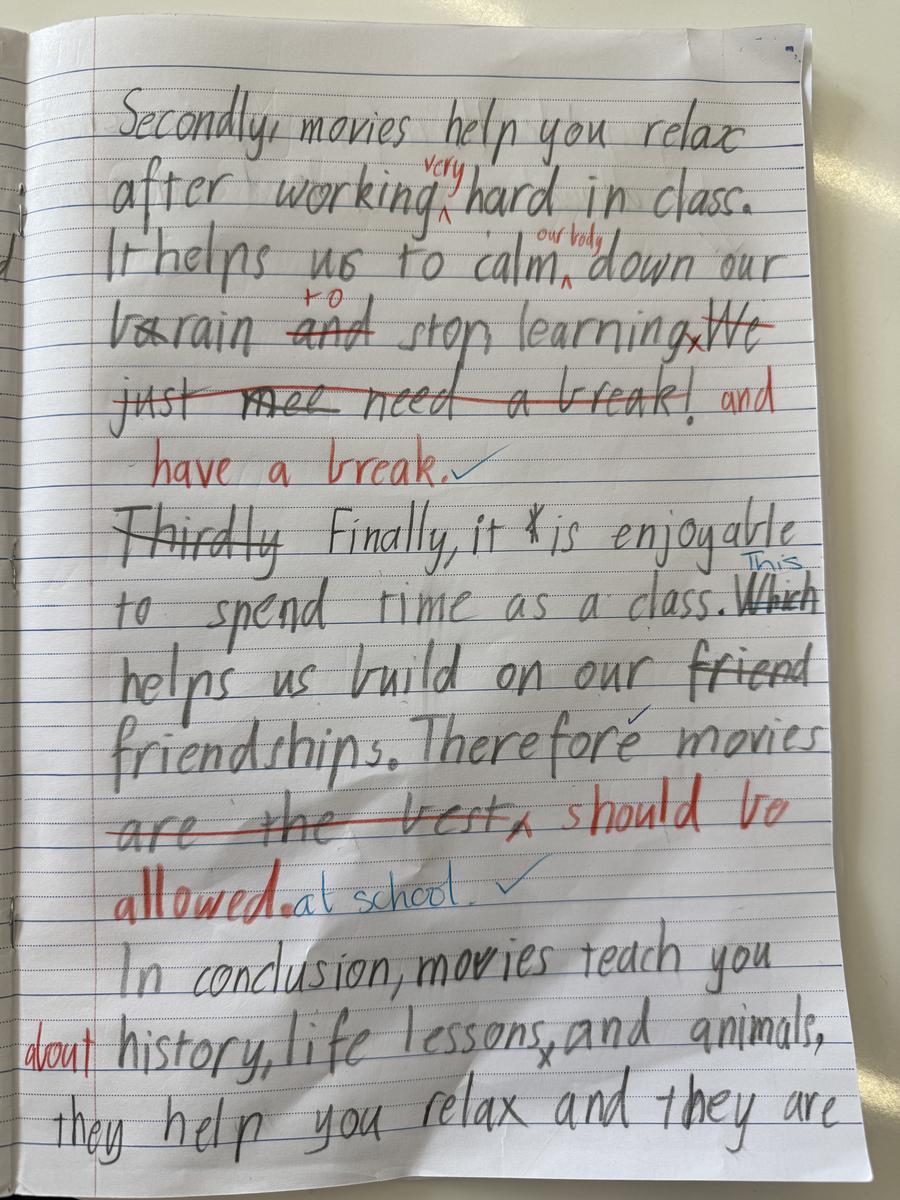 Secondly, movies help you relax
after working very hard in class.
It helps us to calm our body down our
brain and to stop learning. We
just mee need a break! and
have a break.
Thirdly Finally, it is enjoyable
to spend time as a class. Which This
helps us build on our friend
friendships. Therefore movies
are the best should be
allowed. at school.
In conclusion, movies teach you
about history, life lessons, and animals,
they help you relax and they are